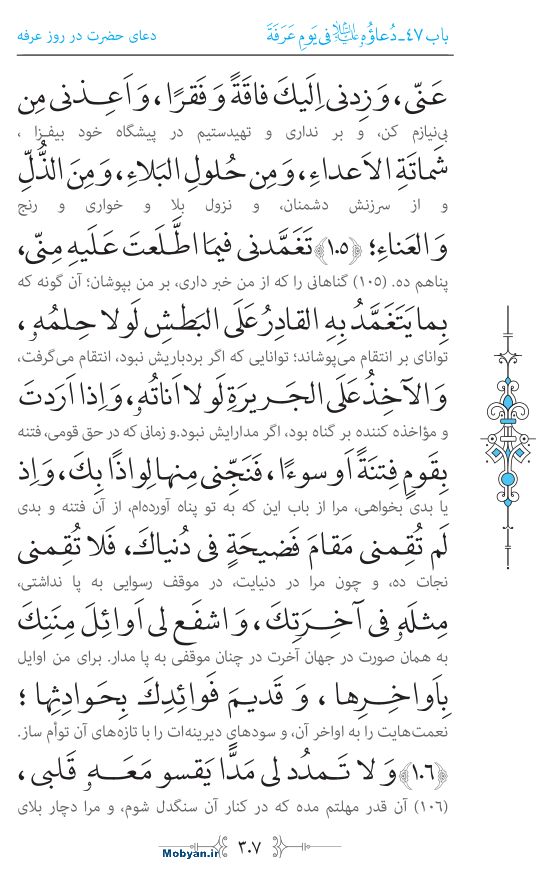 باب ٤٧ـ دُعاؤُهُ علیه‌السلام فی یَومِ عَرَفَةَ
دعای حضرت در روز عرفه
عَنّی، وَ زِدنی اِلَیكَ فاقَةً وَ فَقرًا، وَ اَعِذنی مِن
بی‌نیازم کن، و بر نداری و تهیدستیم در پیشگاه خود بیفـزا ،
شَماتَةِ الاَعداءِ، وَ مِن حُلولِ البَلاءِ، وَ مِنَ الذُّلِّ
و از سرزنش دشمنان، و نزول بلا و خواری و رنج
وَ العَناءِ؛ ﴿١٠٥﴾ تَغَمَّدنی فیمَا اطَّلَعتَ عَلَیهِ مِنّی،
پناهم ده. (۱۰۵) گناهانی را که از من خبر داری، بر من بپوشان؛ آن گونه که
بِما یَتَغَمَّدُ بِهِ القادِرُ عَلَی البَطشِ لَولا حِلمُهُ،
توانای بر انتقام می‌پوشاند؛ توانایی که اگر بردباریش نبود، انتقام می‌گرفت،
وَ الآخِذُ عَلَی الجَریرَةِ لَولا اَناتُهُ، وَ اِذا اَرَدتَ
و مؤاخذه کننده بر گناه بود، اگر مدارایش نبود. و زمانی که در حق قومی، فتنه
بِقَومٍ فِتنَةً اَو سوءًا، فَنَجِّنی مِنها لِواذًا بِكَ، وَ اِذ
یا بدی بخواهی، مرا از باب این که به تو پناه آورده‌ام، از آن فتنه و بدی
لَم تُقِمنی مَقامَ فَضیحَةٍ فی دُنیاكَ، فَلا تُقِمنی
نجات ده، و چون مرا در دنیایت، در موقف رسوایی به پا نداشتی،
مِثلَهُ فی آخِرَتِكَ، وَ اشفَع لی اَوائِلَ مِنَنِكَ
به همان صورت در جهان آخرت در چنان موقفی به پا مدار. برای من اوایل
بِاَواخِرِها ، وَ قَدیمَ فَوائِدِكَ بِحَوادِثِها ؛
نعمت‌هایت را به اواخر آن، و سودهای دیرینه‌ات را با تازه‌های آن توأم ساز.
﴿١٠٦﴾ وَ لا تَمدُد لی مَدًّا یَقسو مَعَهُ قَلبی،
(۱۰۶) آن قدر مهلتم مده که در کنار آن سنگدل شوم، و مرا دچار بلای
۳۰۷
Mobyan.ir